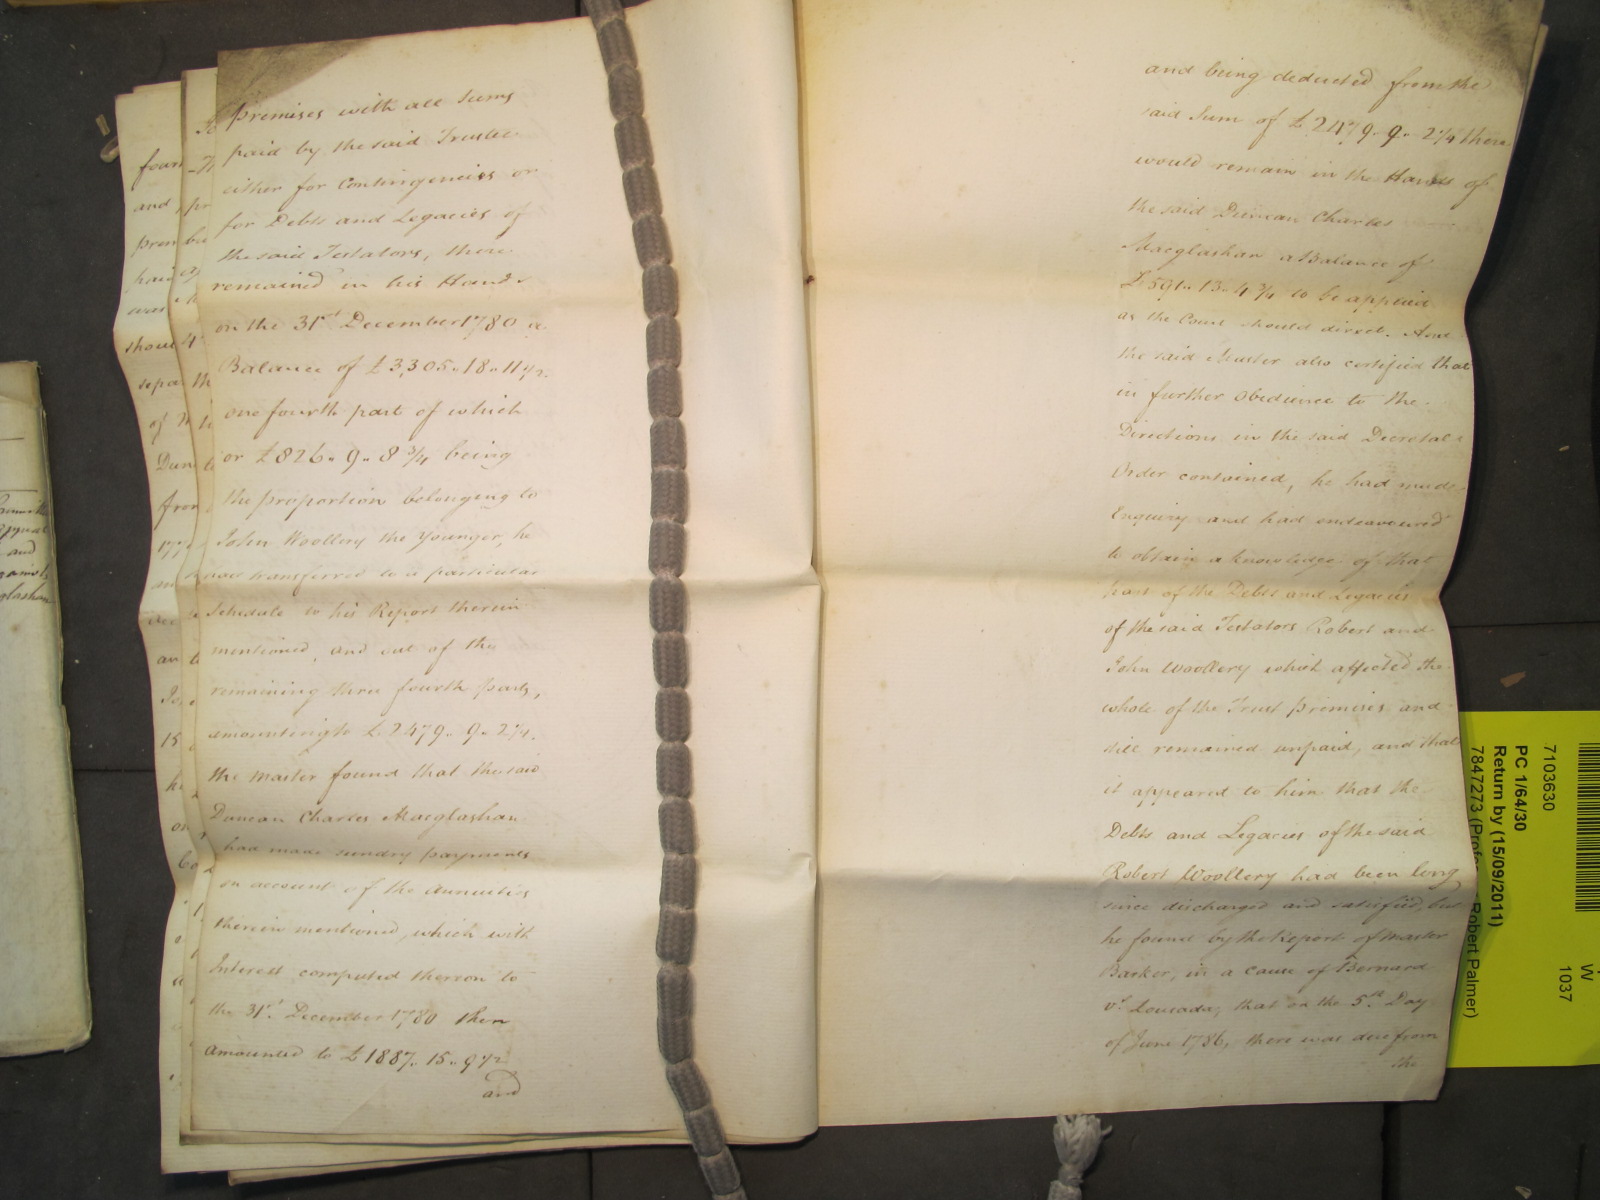 premises with all Sums
paid by the said Trustee
either for Contingencies or
for Debts and Legacies of
the said Testators, there
remained in his Hands
on the 31st December 1780 a
Balance of £3,305..18..11 1/2.
one fourth part of which
or £826..9..8 3/4 being
the proportion belonging to
John Woollery the Younger, he
had transferred to a particular
Schedule to his Report therein
mentioned, and out of the
remaining three fourth parts,
amounting to £2479..9..2 1/4.
the Master found that the said
Duncan Charles Macglashan
had made sundry payments
on account of the Annuities
therein mentioned, which with
Interest computed thereon to
the 31st December 1780 then
amounted to £1887..15..9 1/2
and
and being deducted from the
said Sum of £2479..9..2 1/4 there
would remain in the Hands of
the said Duncan Charles
Macglashan a Balance of
£591..13..4 3/4 to be applied
as the Court should direct. And
the said Master also certified that
in further Obedience to the
Directions in the said Decretal
Order contained, he had made
Enquiry and had endeavoured
to obtain a knowledge of that
part of the Debts and Legacies
of the said Testators Robert and
John Woollery which affected the
whole of the Trust premises and
still remained unpaid, and that
it appeared to him that the
Debts and Legacies of the said
Robert Woollery had been long
since discharged and satisfied, but
he found by the Report of Master
Barker, in a cause of Bernard
vs. Lousada, that on the 5th Day
of June 1786, there was due from
the
7103630
PC 1/64/30
Return by (15/09/2011)
7847273 (Profe Robert Palmer)
W
1037